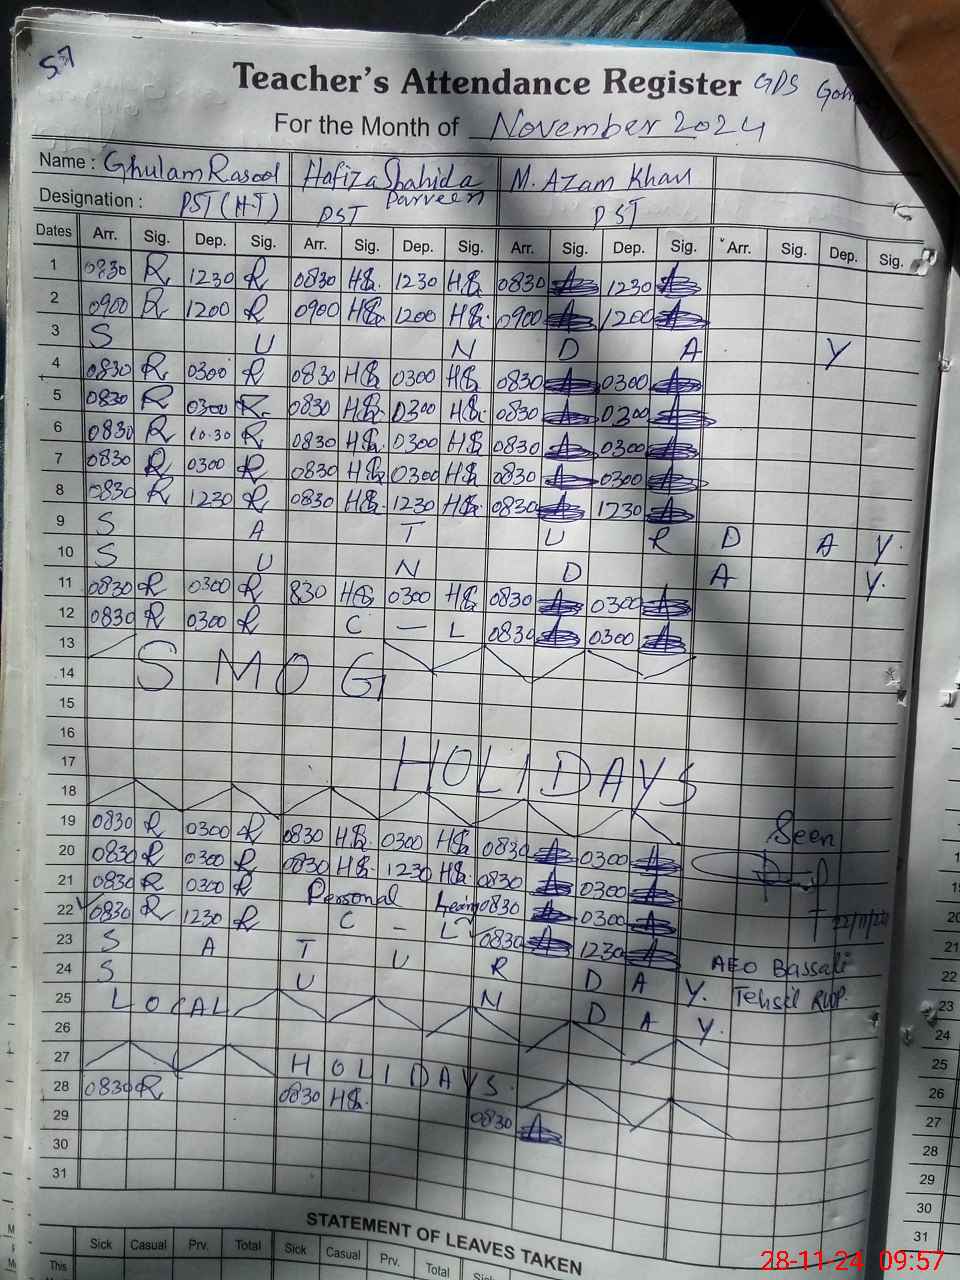 57
Teacher's Attendance Register GPS
For the Month of November 2024
Name : Ghulam Rasool Hafiza Shahida Parveen M. Azam Khan
Designation : PST (H-T) PST PST
Dates Arr. Sig. Dep. Sig. Arr. Sig. Dep. Sig. Arr. Sig. Dep. Sig. Arr. Sig. Dep. Sig.
1 0830 R 1230 R 0830 1230 0830 1230
2 0900 R 1200 R 0900 1200 0900 1200
3 S U N D A Y
4 0830 R 0300 R 0830 0300 0830 0300
5 0830 R 0300 R 0830 0300 0830 0300
6 0830 R 10.30 R 0830 0300 0830 0300
7 0830 R 0300 R 0830 0300 0830 0300
8 0830 R 1230 R 0830 1230 0830 1230
9 S A T U R D A Y.
10 S U N D A Y.
11 0830 R 0300 R 830 0300 0830 0300
12 0830 R 0300 R C - L 0830 0300
13
14 SMOG
15
16
17 HOLIDAYS
18
19 0830 R 0300 R 0830 0300 0830 0300
Seen
20 0830 R 0300 R 0830 1230 0830 0300
21 0830 R 0300 R Personal 0830 0300
22 0830 R 1230 R C - L 0830 1230
22/11/24
23 S A T U R D A Y.
AEO Bassali
24 S U N D A Y.
Tehsil RWP.
25 LOCAL
26
27 HOLIDAYS.
28 0830 R 0830 0830
29
30
31
STATEMENT OF LEAVES TAKEN
Sick Casual Prv. Total Sick Casual Prv. Total Sick
This
19
20
21
22
23
24
25
26
27
28
29
30
31
28-11-24 09:57